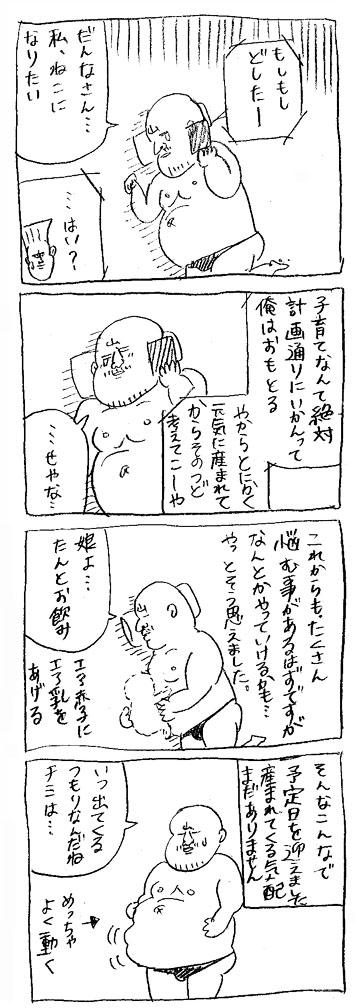 もしもし
どしたー
だんなさん…
私、ねこに
なりたい
…はい?
子育てなんて絶対
計画通りにいかんって
俺はおもとる
やからとにかく
元気に産まれて
からそのつど
考えてこーや
…せやな…
これからも、たくさん
悩む事があるはずですが
なんとかやっていけるかも…
やっとそう思えました。
娘よ…
たんとお飲み
エア赤子に
エア乳を
あげる
そんなこんなで
予定日を迎えました
産まれてくる気配
まだありません
いつ出てくる
つもりなんだね
チミは…
めっちゃ
よく動く